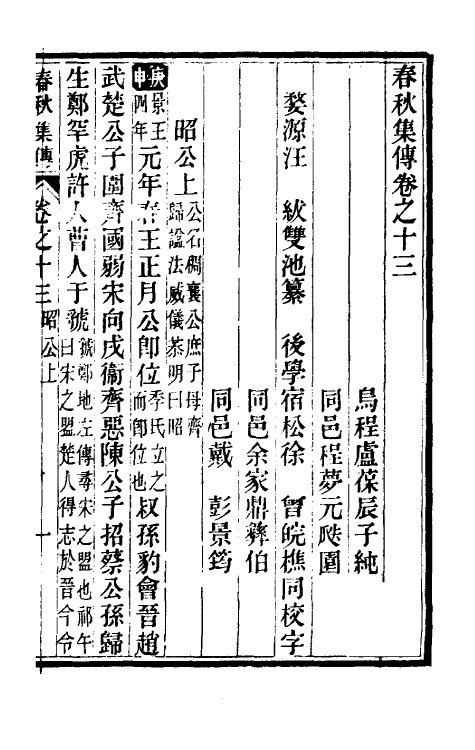 春秋集傳卷之十三
烏程盧葆辰子純
同邑程夢元陔園
婺源汪 紱雙池纂 後學宿松徐 暂皖樵同校字
同邑余家鼎彝伯
同邑戴 彭景筠
昭公上
公名稠襄公庶子母齊
歸諡法威儀恭明曰昭
庚申
景王
四年
元年春王正月公卽位
季氏立之
而卽位也
叔孫豹會晉趙
武楚公子圍齊國弱宋向戌衞齊惡陳公子招蔡公孫歸
生鄭罕虎許人曹人于虢
虢鄭地左傳尋宋之盟也祁午
曰宋之盟楚人得志於晉今令
春秋集傳
卷之十三
昭公上
十